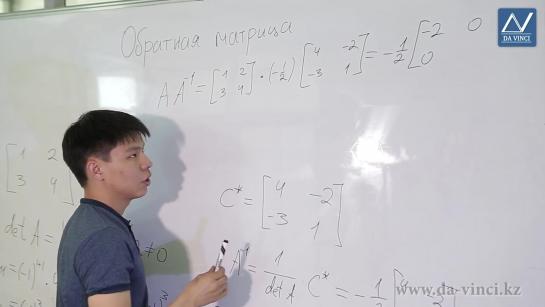 Обратная матрица
A A⁻¹ = [1 2; 3 4] · (-1/2) [4 -2; -3 1] = -1/2 [-2 0; 0
[1 2; 3 4]
C* = [4 -2; -3 1]
det A =
≠0
A⁻¹ = 1/det A C* = -1
DA VINCI
www.da-vinci.kz